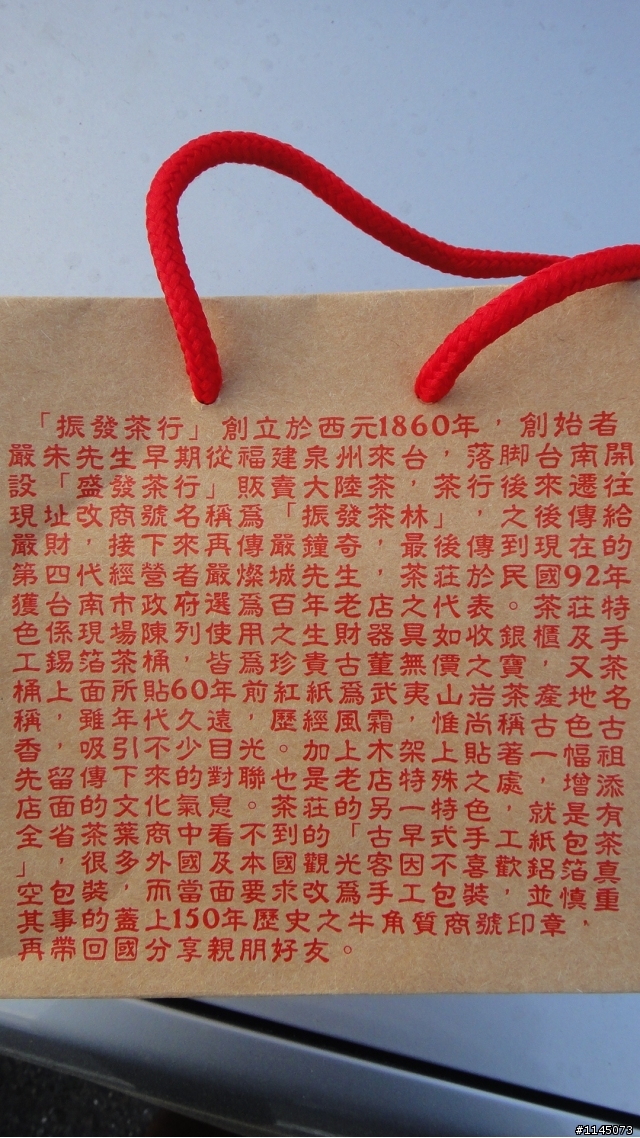 「振發茶行」創立於西元1860年，創始者
嚴朱先生早期從福建泉州來台，落脚台南開
設「盛發茶行」販賣大陸茶，茶行後來遷往
現址改商號名稱爲「振發茶林」，之後傳給
嚴財，接下來再傳嚴鐘奇，最後傳到現在的
第四代經營者嚴燦城先生，茶莊於民國92年
獲台南市政府選爲百年老店之代表。茶莊特
色係現場陳列使用之生財器具如收銀櫃及手
工錫箔茶桶，皆爲珍貴古董無價之寶，又茶
桶上面所貼60年前紅紙爲武夷山岩茶產地名
稱，雖年代久遠，歷經風霜惟尚稱古色古
香，吸引不少目光。加上木架上貼著一幅祖
先留傳下來的對聯也是老店特殊之處，增添
店面的文化氣息。茶莊的另一特色就是有
全省茶葉商中看不到的「古早式手工紙包茶
」，很多外國及本國觀光客因不喜歡鋁箔真
空包裝，而當面要求改爲手工包裝，並慎重
其事的蓋上150年歷史之牛角質商號印章，
再帶回國分享親朋好友。
#1145073